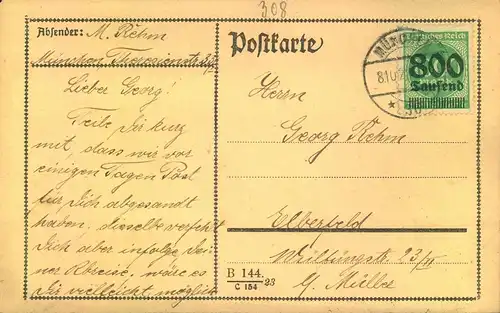 308
Absender: M. Rehm
München Theresienstr.
Postkarte
Deutsches Reich
800
Tausend
Lieber Georg!
Teile Dir kurz
mit, dass wir vor
einigen Tagen Post
für Dich abgesandt
haben, dieselbe verfehlt
Dich aber infolge Dei-
ner Abreise, wäre es
Dir vielleicht möglich
Herrn
Georg Rehm
Elberfeld
23/II
b/ Müller
B 144. 23
C 154